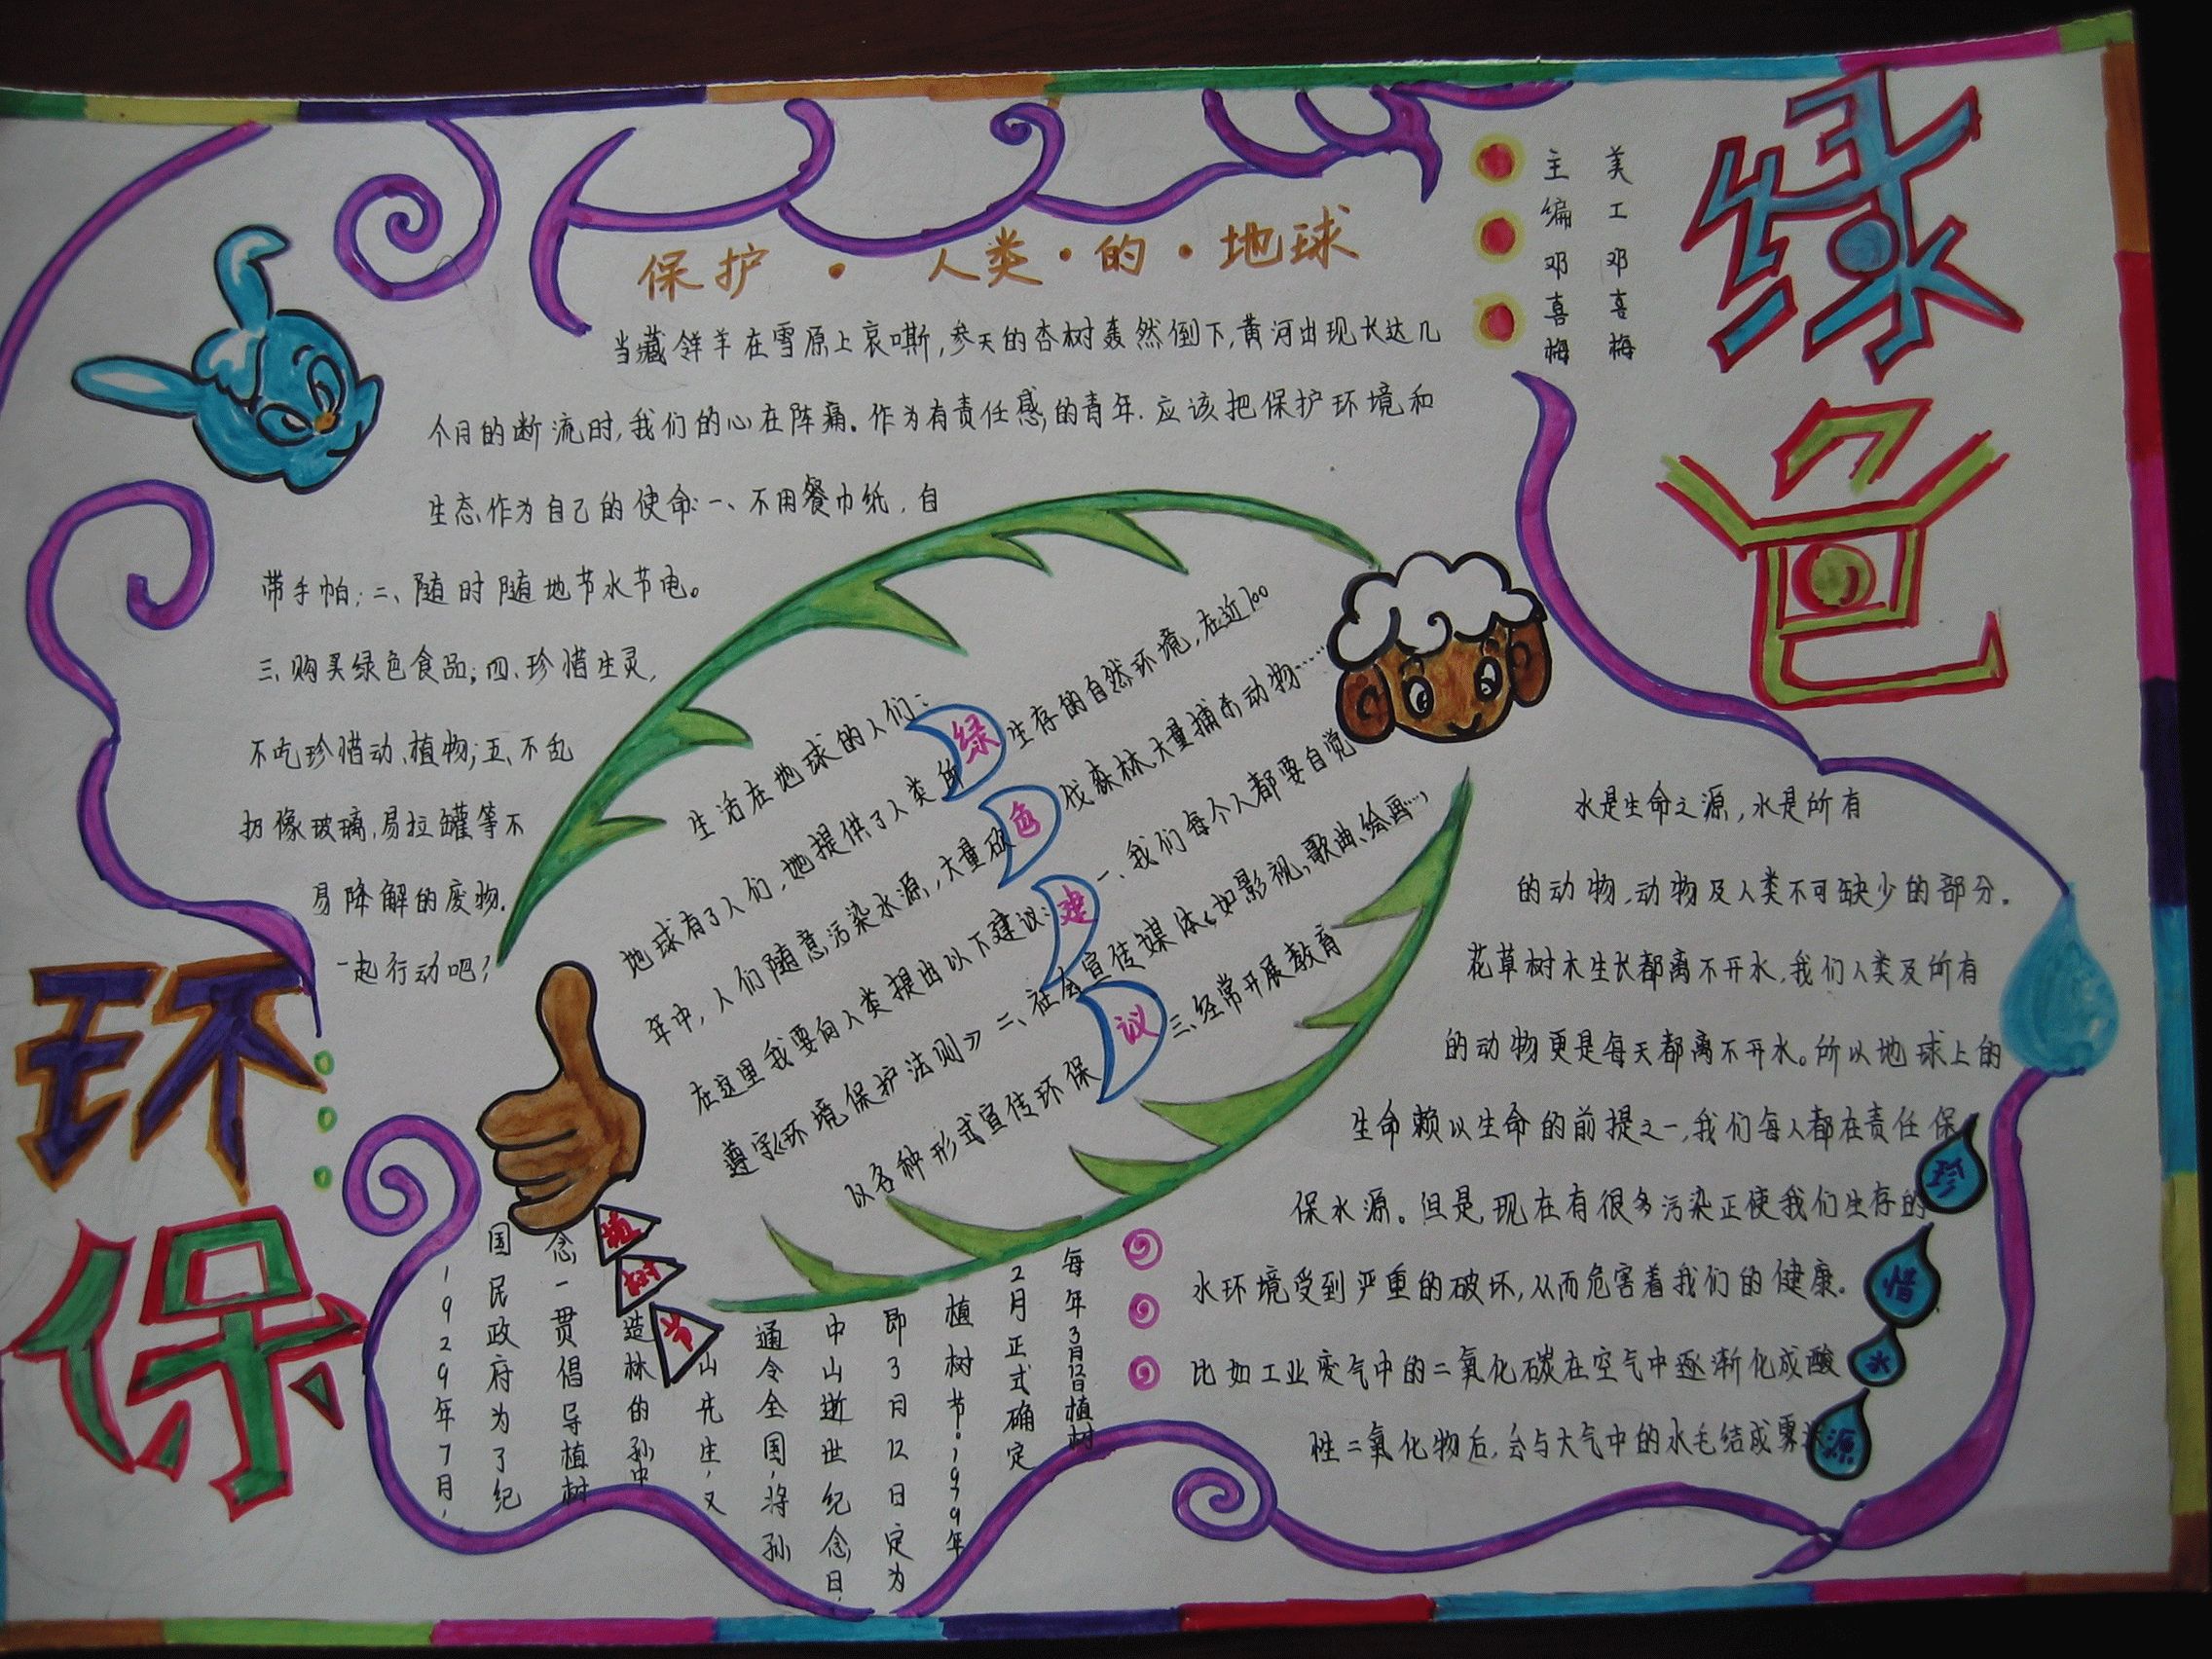 绿色
环保
主编邓喜梅
美工邓喜梅
保护·人类·的·地球
当藏羚羊在雪原上哀嘶,参天的杏树轰然倒下,黄河出现长达几
个月的断流时,我们的心在阵痛。作为有责任感的青年.应该把保护环境和
生态作为自己的使命:一、不用餐巾纸,自
带手帕;二、随时随地节水节电。
三.购买绿色食品;四.珍惜生灵,
不吃珍惜动、植物;五、不乱
扔像玻璃,易拉罐等不
易降解的废物.
一起行动吧!
绿色建议
生活在地球的人们:
地球有了人们,她提供了人类所生存的自然环境,在近100
年中,人们随意污染水源,大量砍伐森林、大量捕杀动物……
在这里我要向人类提出以下建议:一、我们每个人都要自觉
遵守《环境保护法则》二、社会宣传媒体,如影视、歌曲、绘画…,
以各种形式宣传环保三、经常开展教育
珍惜水源
水是生命之源,水是所有
的动物,动物及人类不可缺少的部分.
花草树木生长都离不开水,我们人类及所有
的动物更是每天都离不开水。所以地球上的
生命赖以生命的前提之一,我们每人都在责任保
保水源。但是,现在有很多污染正使我们生存的
水环境受到严重的破坏,从而危害着我们的健康.
比如工业废气中的二氧化碳在空气中逐渐化成酸
性二氧化物后,会与大气中的水毛结成雾
植树节
每年3月12日植树
2月正式确定
植树节.1999年
即3月12日定为
中山逝世纪念日,
通令全国,将孙
山先生,又
造林的孙中
念一贯倡导植树
国民政府为了纪
1929年7月,